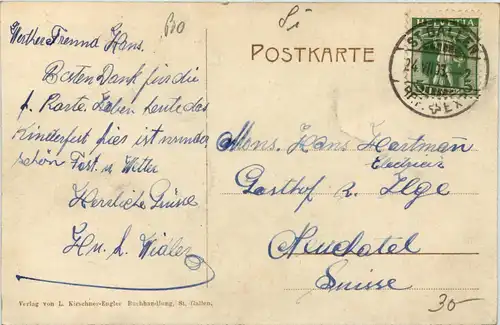 Werther Freund Hans.
Besten Dank für die
f. Karte. Haben heute das
Kinderfest hier ist wunder
schön Fest. u. Witter
Herzliche Grüsse
POSTKARTE
HELVETIA
ST. GALLEN
24.VII.
Mons. Hans Hartman
Electricien
Gasthof z. Ilge
Neuchatel
Suisse
30-
Verlag von L. Kirschner-Engler Buchhandlung, St. Gallen.